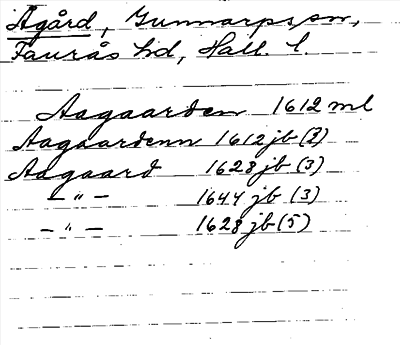 Ågård, Gunnarps sn,
Faurås hd, Hall. l.
Aagaarden 1612 ml
Aagaardenn 1612 jb (3)
Aagaard 1628 jb (3)
— " — 1644 jb (3)
— " — 1628 jb (5)